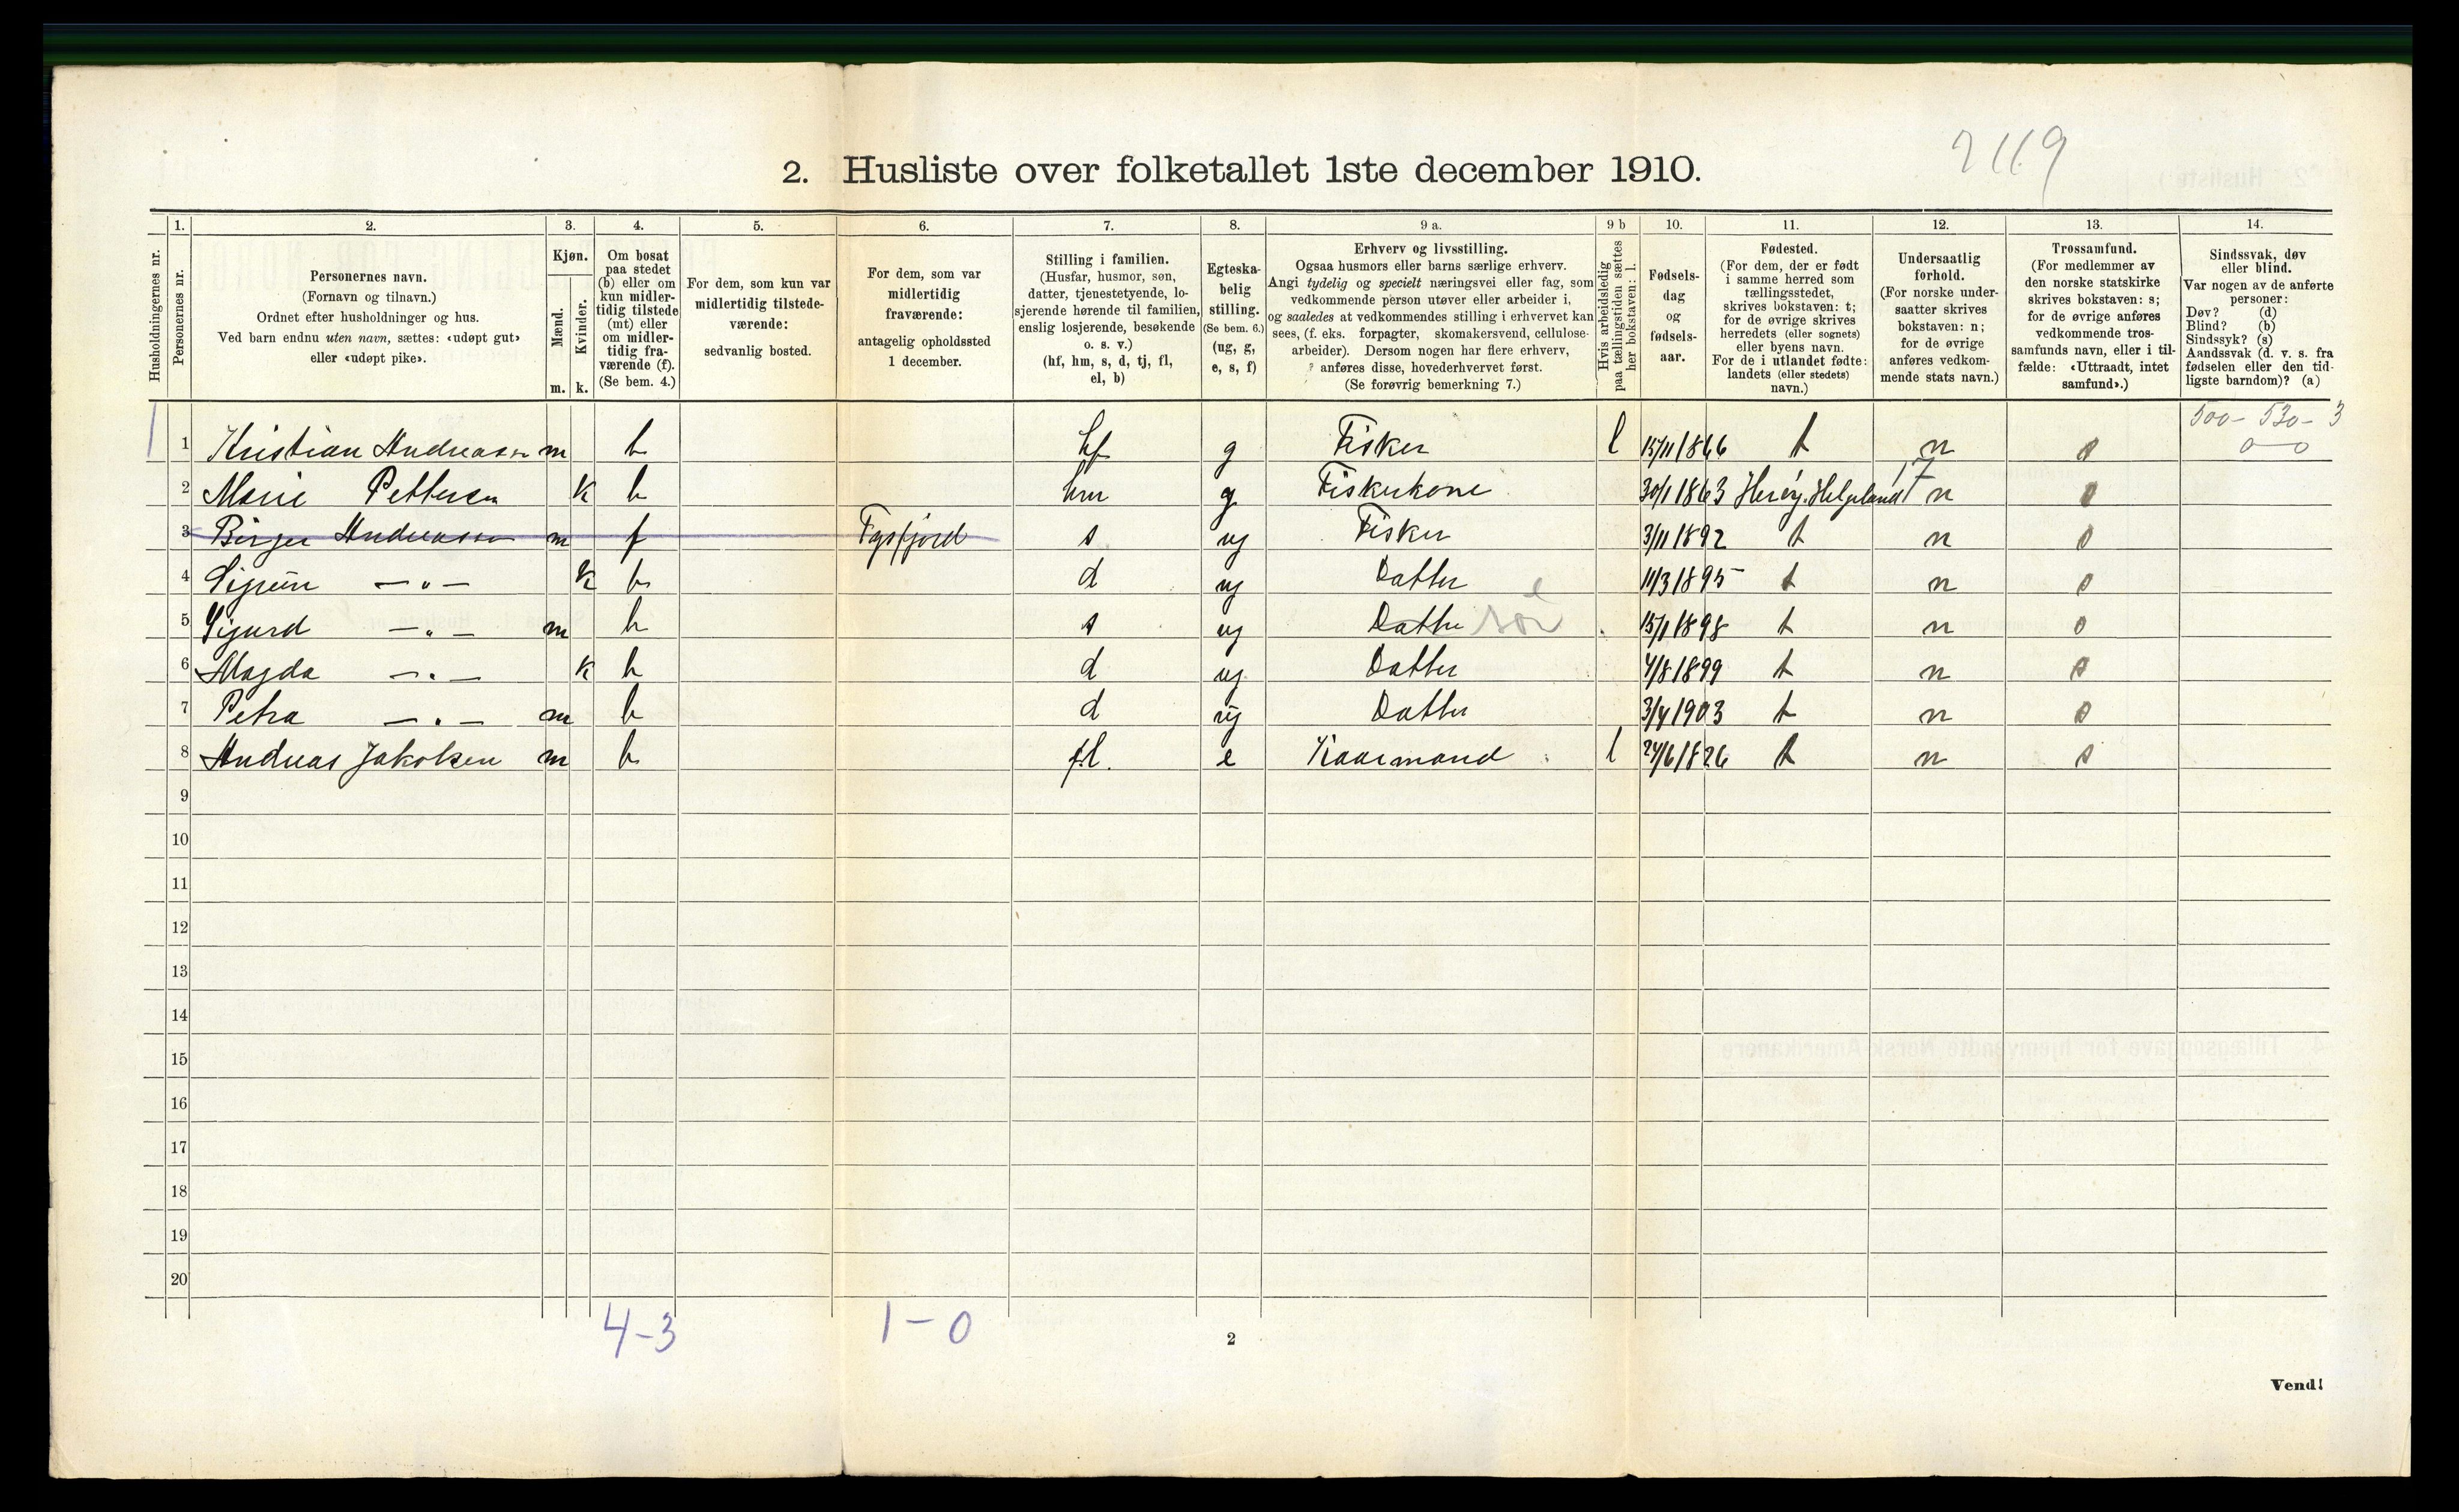 2119
2. Husliste over folketallet 1ste december 1910.
Husholdningernes nr.
1. Personernes nr.
2. Personernes navn.
(Fornavn og tilnavn.)
Ordnet efter husholdninger og hus.
Ved barn endnu uten navn, sættes: «udøpt gut»
eller «udøpt pike».
3. Kjøn.
Mænd. m.
Kvinder. k.
4. Om bosat
paa stedet
(b) eller om
kun midler-
tidig tilstede
(mt) eller
om midler-
tidig fra-
værende (f).
(Se bem. 4.)
5. For dem, som kun var
midlertidig tilstede-
værende:
sedvanlig bosted.
6. For dem, som var
midlertidig
fraværende:
antagelig opholdssted
1 december.
7. Stilling i familien.
(Husfar, husmor, søn,
datter, tjenestetyende, lo-
sjerende hørende til familien,
enslig losjerende, besøkende
o. s. v.)
(hf, hm, s, d, tj, fl,
el, b)
8. Egteska-
belig
stilling.
(Se bem. 6.)
(ug, g,
e, s, f)
9 a. Erhverv og livsstilling.
Ogsaa husmors eller barns særlige erhverv.
Angi tydelig og specielt næringsvei eller fag, som
vedkommende person utøver eller arbeider i,
og saaledes at vedkommendes stilling i erhvervet kan
sees, (f. eks. forpagter, skomakersvend, cellulose-
arbeider). Dersom nogen har flere erhverv,
anføres disse, hovederhvervet først.
(Se forøvrig bemerkning 7.)
9 b Hvis arbeidsledig
paa tællingstiden sættes
her bokstaven: l.
10. Fødsels-
dag
og
fødsels-
aar.
11. Fødested.
(For dem, der er født
i samme herred som
tællingsstedet,
skrives bokstaven: t;
for de øvrige skrives
herredets (eller sognets)
eller byens navn.
For de i utlandet fødte:
landets (eller stedets)
navn.)
12. Undersaatlig
forhold.
(For norske under-
saatter skrives
bokstaven: n;
for de øvrige
anføres vedkom-
mende stats navn.)
13. Trossamfund.
(For medlemmer av
den norske statskirke
skrives bokstaven: s;
for de øvrige anføres
vedkommende tros-
samfunds navn, eller i til-
fælde: «Uttraadt, intet
samfund».)
14. Sindssvak, døv
eller blind.
Var nogen av de anførte
personer:
Døv? (d)
Blind? (b)
Sindssyk? (s)
Aandssvak (d. v. s. fra
fødselen eller den tid-
ligste barndom)? (a)
500- 530- 3
0-0
1 1 Kristian Andreasen m b hf g Fisker l 15/11 1866 t n s
2 Marie Pettersen k b hm g Fiskerkone 30/1 1863 Herøy. Helgeland 17 n s
3 Birger Andreasen m f Fygsfjord s ug Fisker 3/11 1892 t n s
4 Sigrun —„— k b d ug Datter 11/3 1895 t n s
5 Sigurd —„— m b s ug Datter søn 15/1 1898 t n s
6 Magda —„— k b d ug Datter 4/8 1899 t n s
7 Petra —„— m b d ug Datter 3/4 1903 t n s
8 Andreas Jakobsen m b fl. e Kaarmand l 24/6 1826 t n s
9
10
11
12
13
14
15
16
17
18
19
20
4-3 1-0
2
Vend!